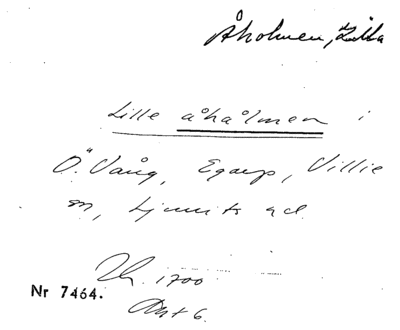 Åholmen, Lilla
Lille åhålmen i
Ö. Vång, Egarp, Villie
sn, Ljunits hd.
Lh. 1700
Akt 6.
Nr 7464.